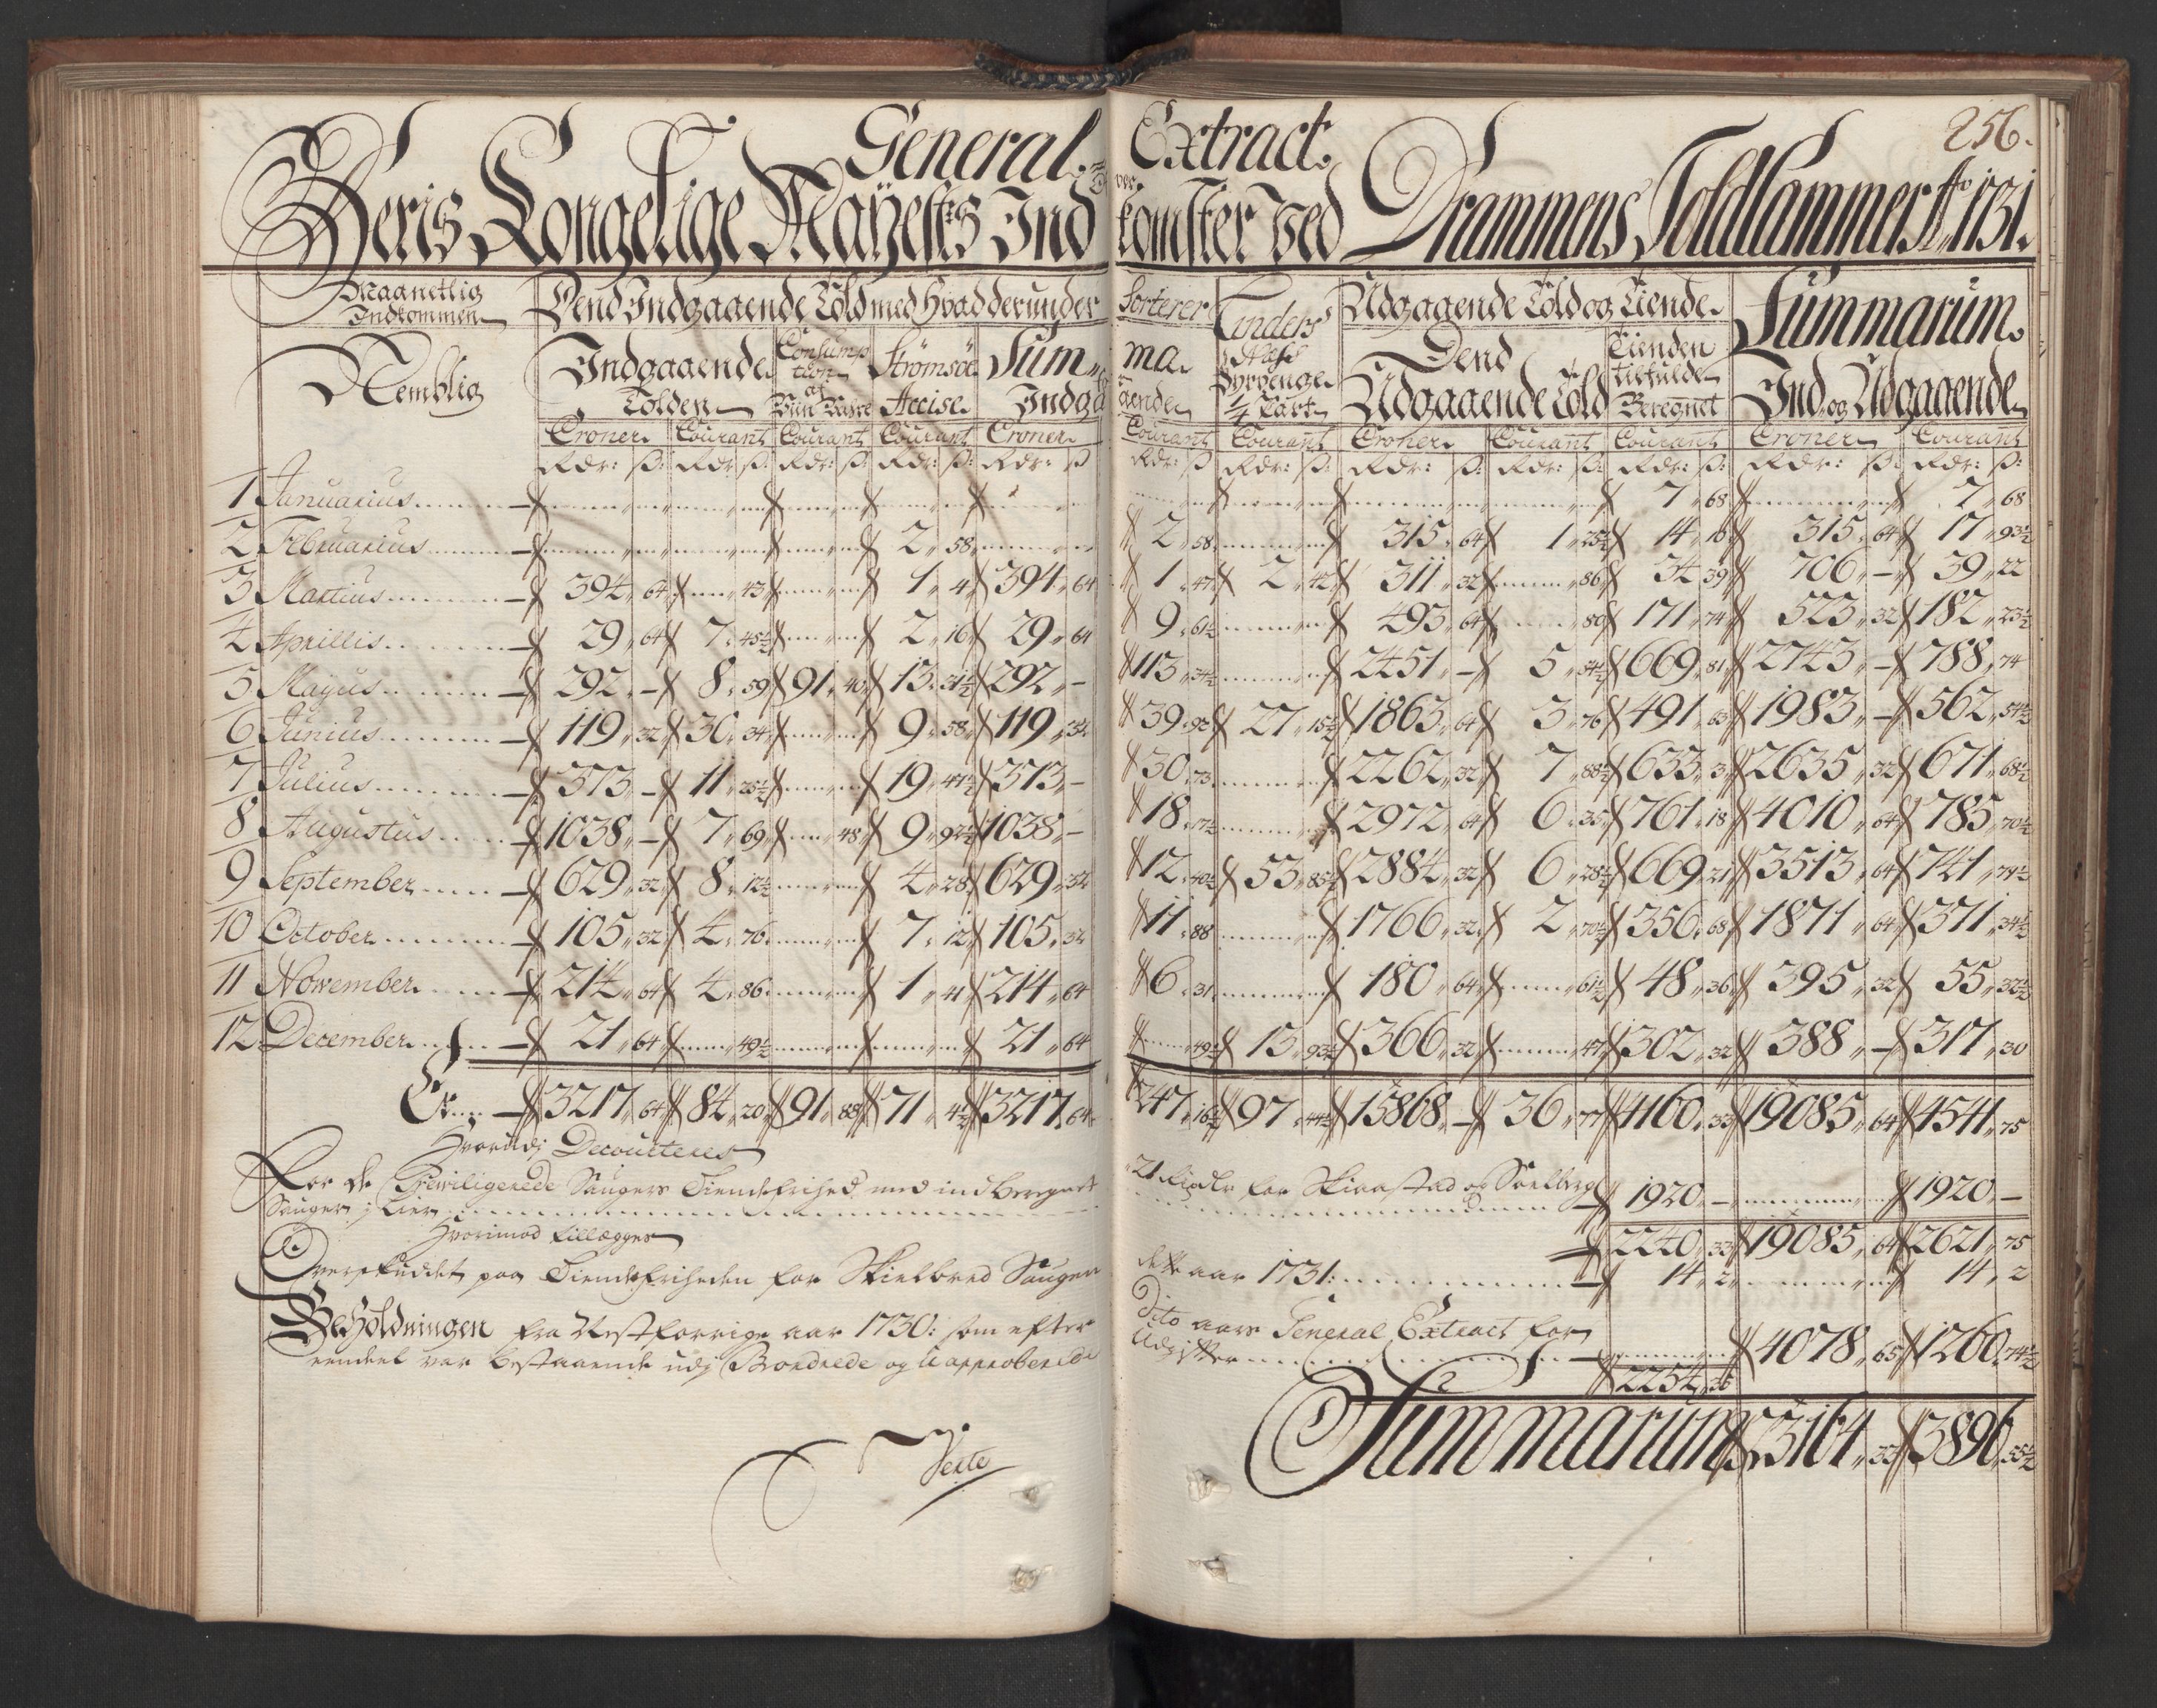 General Extract
256.
over
Heris Kongelige Mayestts Indkomster ved Drammens Toldkammer Ao 1731.
Maanetlig Indkommen Dend Indgaaende Told med Hvad derunder Sorterer Tinders Udgaaende Told og Tiende Summarum
Nemblig Indgaaende Tolden Consumption af Strömsöe Accise Summa Indgaaende Næsse Fyrpenge 1/4 Part Dend Udgaaende Told Tienden tilfulde Beregnet Ind og Udgaaende
Croner Courant Courant Courant Croner Courant Courant Croner Courant Courant Croner Courant
Rdr: ß: Rdr: ß: Rdr: ß: Rdr: ß: Rdr: ß Rdr: ß Rdr: ß: Rdr: ß: Rdr: ß: Rdr: ß: Rdr: ß: Rdr: ß:
1 Januarius 7 68 7 68
2 Februarius 2 58 2 58 315 64 1 25½ 14 10 315 64 17 93½
3 Martius 394 64 43 1 4 394 64 1 47 2 42 311 32 86 34 39 706 – 39 22
4 Aprillis 29 64 7 45½ 2 16 29 64 9 61½ 493 64 80 171 74 523 32 182 23½
5 Mayus 292 – 8 59 91 40 13 31½ 292 – 113 34½ 2451 – 5 54½ 669 81 2743 – 788 74
6 Junius 119 32 30 34 9 58 119 32 39 92 27 15½ 1863 64 3 76 491 63 1983 – 562 54½
7 Julius 373 – 11 25½ 19 47½ 373 – 30 73 2262 32 7 88½ 633 3 2635 32 671 68½
8 Augustus 1038 – 7 69 48 9 92½ 1038 – 18 17½ 2972 64 6 35 761 18 4010 64 785 70½
9 September 629 32 8 12½ 4 28 629 32 12 40½ 53 85½ 2884 32 6 28½ 669 21 3513 64 741 79½
10 October 105 32 4 76 7 12 105 32 11 88 1766 32 2 70½ 356 68 1871 64 371 34½
11 November 214 64 4 86 1 41 214 64 6 31 180 64 61½ 48 36 395 32 55 32½
12 December 21 64 49½ 21 64 49½ 13 93½ 366 32 47 302 32 388 – 317 30
Er 3217 64 84 20 91 88 71 4½ 3217 64 247 16½ 97 44½ 15868 – 36 77 4160 33 19085 64 4541 75
Hvorudj Decourteres
For de Previligerede Saugers Tiendefrihed med indberegnet 21 Rixdr for Skiaastad og Soelberg
Sauger i Lier 1920 – 1920 –
2240 33 19085 64 2621 75
Hvorimod tillegges
Overskuddet paa Tiendefriheden for Skielbred Saugen dette aar 1731: 14 2 14 2
Beholdningen fra Nestforrige aar 1730: som efter Dito aars General Extract for
eendeel var bestaaende udj Bondrede og U approberede Udgifter 4078 65 1260 74½
2254 35
Summarum 23164 33 3896 55½
Verte